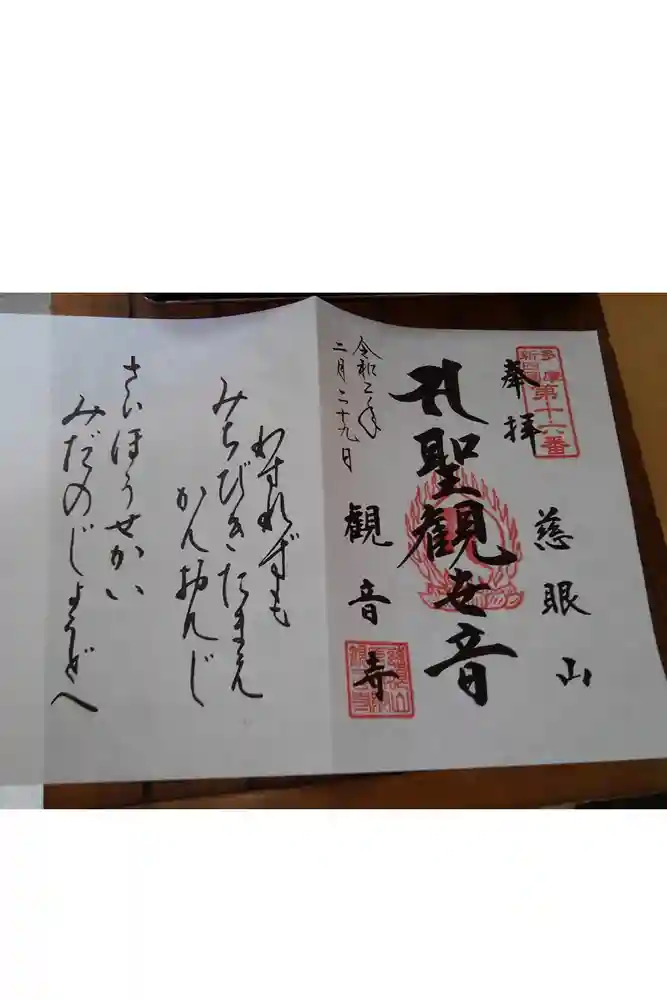 多摩
新四国
第十六番
奉拝
慈眼山
聖観世音
令和二年
二月二十九日
観音寺
わすれずも
みちびきたまえ
かんおんじ
さいほうせかい
みだのじょうどへ